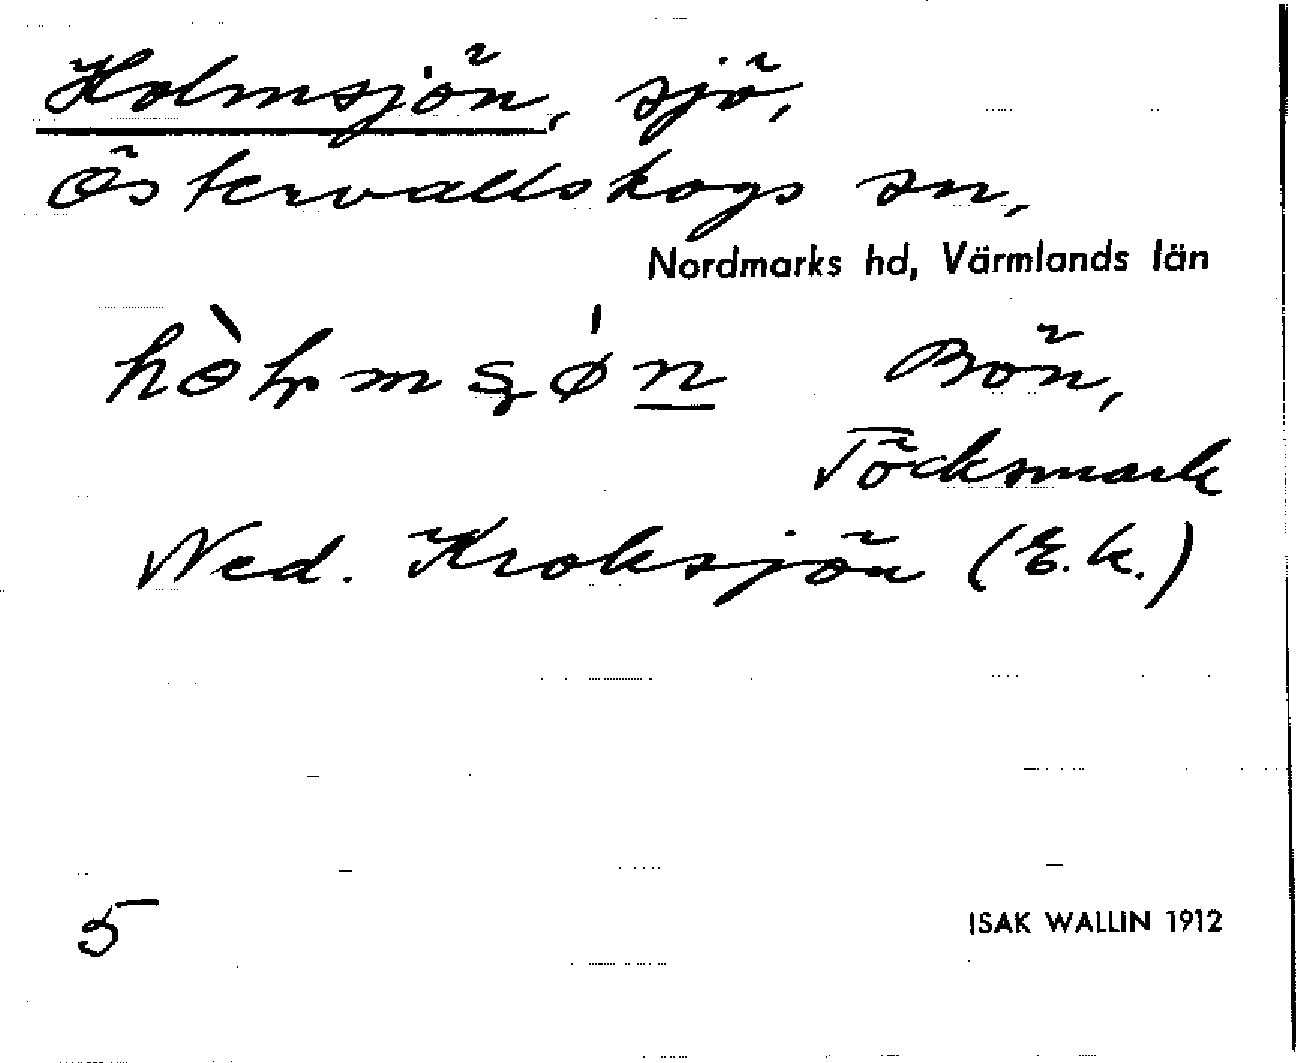 Holmsjön, sjö,
Östervallskogs sn,
Nordmarks hd, Värmlands län
Bön,
Töcksmark
Ned. Kroksjön (E.k.)
5
ISAK WALLIN 1912